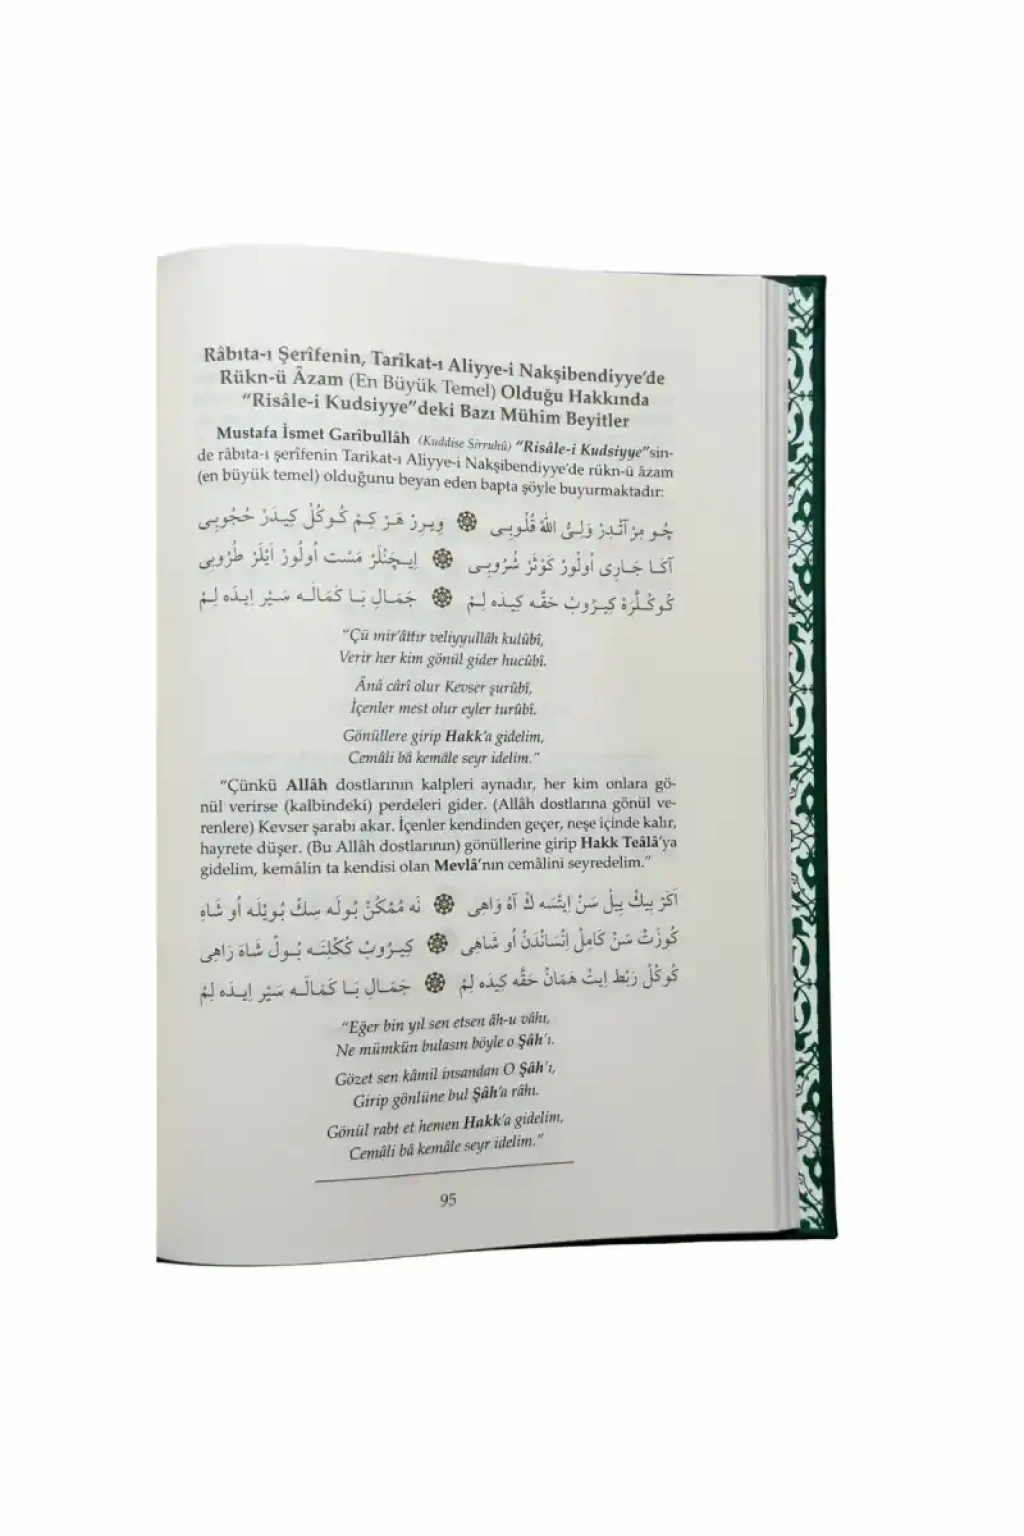 Râbıta-ı Şerîfenin, Tarîkat-ı Aliyye-i Nakşibendiyye'de
Rükn-ü Âzam (En Büyük Temel) Olduğu Hakkında
"Risâle-i Kudsiyye"deki Bazı Mühim Beyitler
Mustafa İsmet Garîbullâh (Kuddise Sirruhû) "Risâle-i Kudsiyye"sin-
de râbıta-ı şerîfenin Tarikat-ı Aliyye-i Nakşibendiyye'de rükn-ü âzam
(en büyük temel) olduğunu beyan eden bapta şöyle buyurmaktadır:
چُو مِرْآتْدِرْ وَلِىُّ اللّٰهْ قُلُوبِى ❁ وِيرِرْ هَرْ كِمْ كُوكُلْ كِيدَرْ حُجُوبِى
آكَا جَارِى اُولُورْ كَوْثَرْ شُرُوبِى ❁ اِيـچَنْلَرْ مَسْت اُولُورْ اَيْلَرْ طُرُوبِى
كُوكُلَّرَهْ كِيرُوبْ حَقَّه كِيدَه لِمْ ❁ جَمَالِ بَا كَمَالَه سَيْر اِيدَه لِمْ
"Çü mir'âttır veliyyullâh kulûbî,
Verir her kim gönül gider hucûbî.
Ânâ cârî olur Kevser şurûbî,
İçenler mest olur eyler turûbî.
Gönüllere girip Hakk'a gidelim,
Cemâli bâ kemâle seyr idelim."
"Çünkü Allâh dostlarının kalpleri aynadır, her kim onlara gö-
nül verirse (kalbindeki) perdeleri gider. (Allâh dostlarına gönül ve-
renlere) Kevser şarabı akar. İçenler kendinden geçer, neşe içinde kalır,
hayrete düşer. (Bu Allâh dostlarının) gönüllerine girip Hakk Teâlâ'ya
gidelim, kemâlin ta kendisi olan Mevlâ'nın cemâlini seyredelim."
اَكَرْ بِيكْ يِيلْ سَنْ اِيتْسَه كْ آهُ وَاهِى ❁ نَه مُمْكُنْ بُولَه سِكْ بُويْلَه اُو شَاهِ
كُوزَتْ سَنْ كَامِلْ اِنْسَانْدَنْ اُو شَاهِى ❁ كِيرُوبْ كُكْلِنَه بُولْ شَاهَ رَاهِى
كُوكُلْ رَبْط اِيتْ هَمَانْ حَقَّه كِيدَه لِمْ ❁ جَمَالِ بَا كَمَالَه سَيْر اِيدَه لِمْ
"Eğer bin yıl sen etsen âh-u vâhı,
Ne mümkün bulasın böyle o Şâh'ı.
Gözet sen kâmil insandan O Şâh'ı,
Girip gönlüne bul Şâh'a râhı.
Gönül rabt et hemen Hakk'a gidelim,
Cemâli bâ kemâle seyr idelim."
95